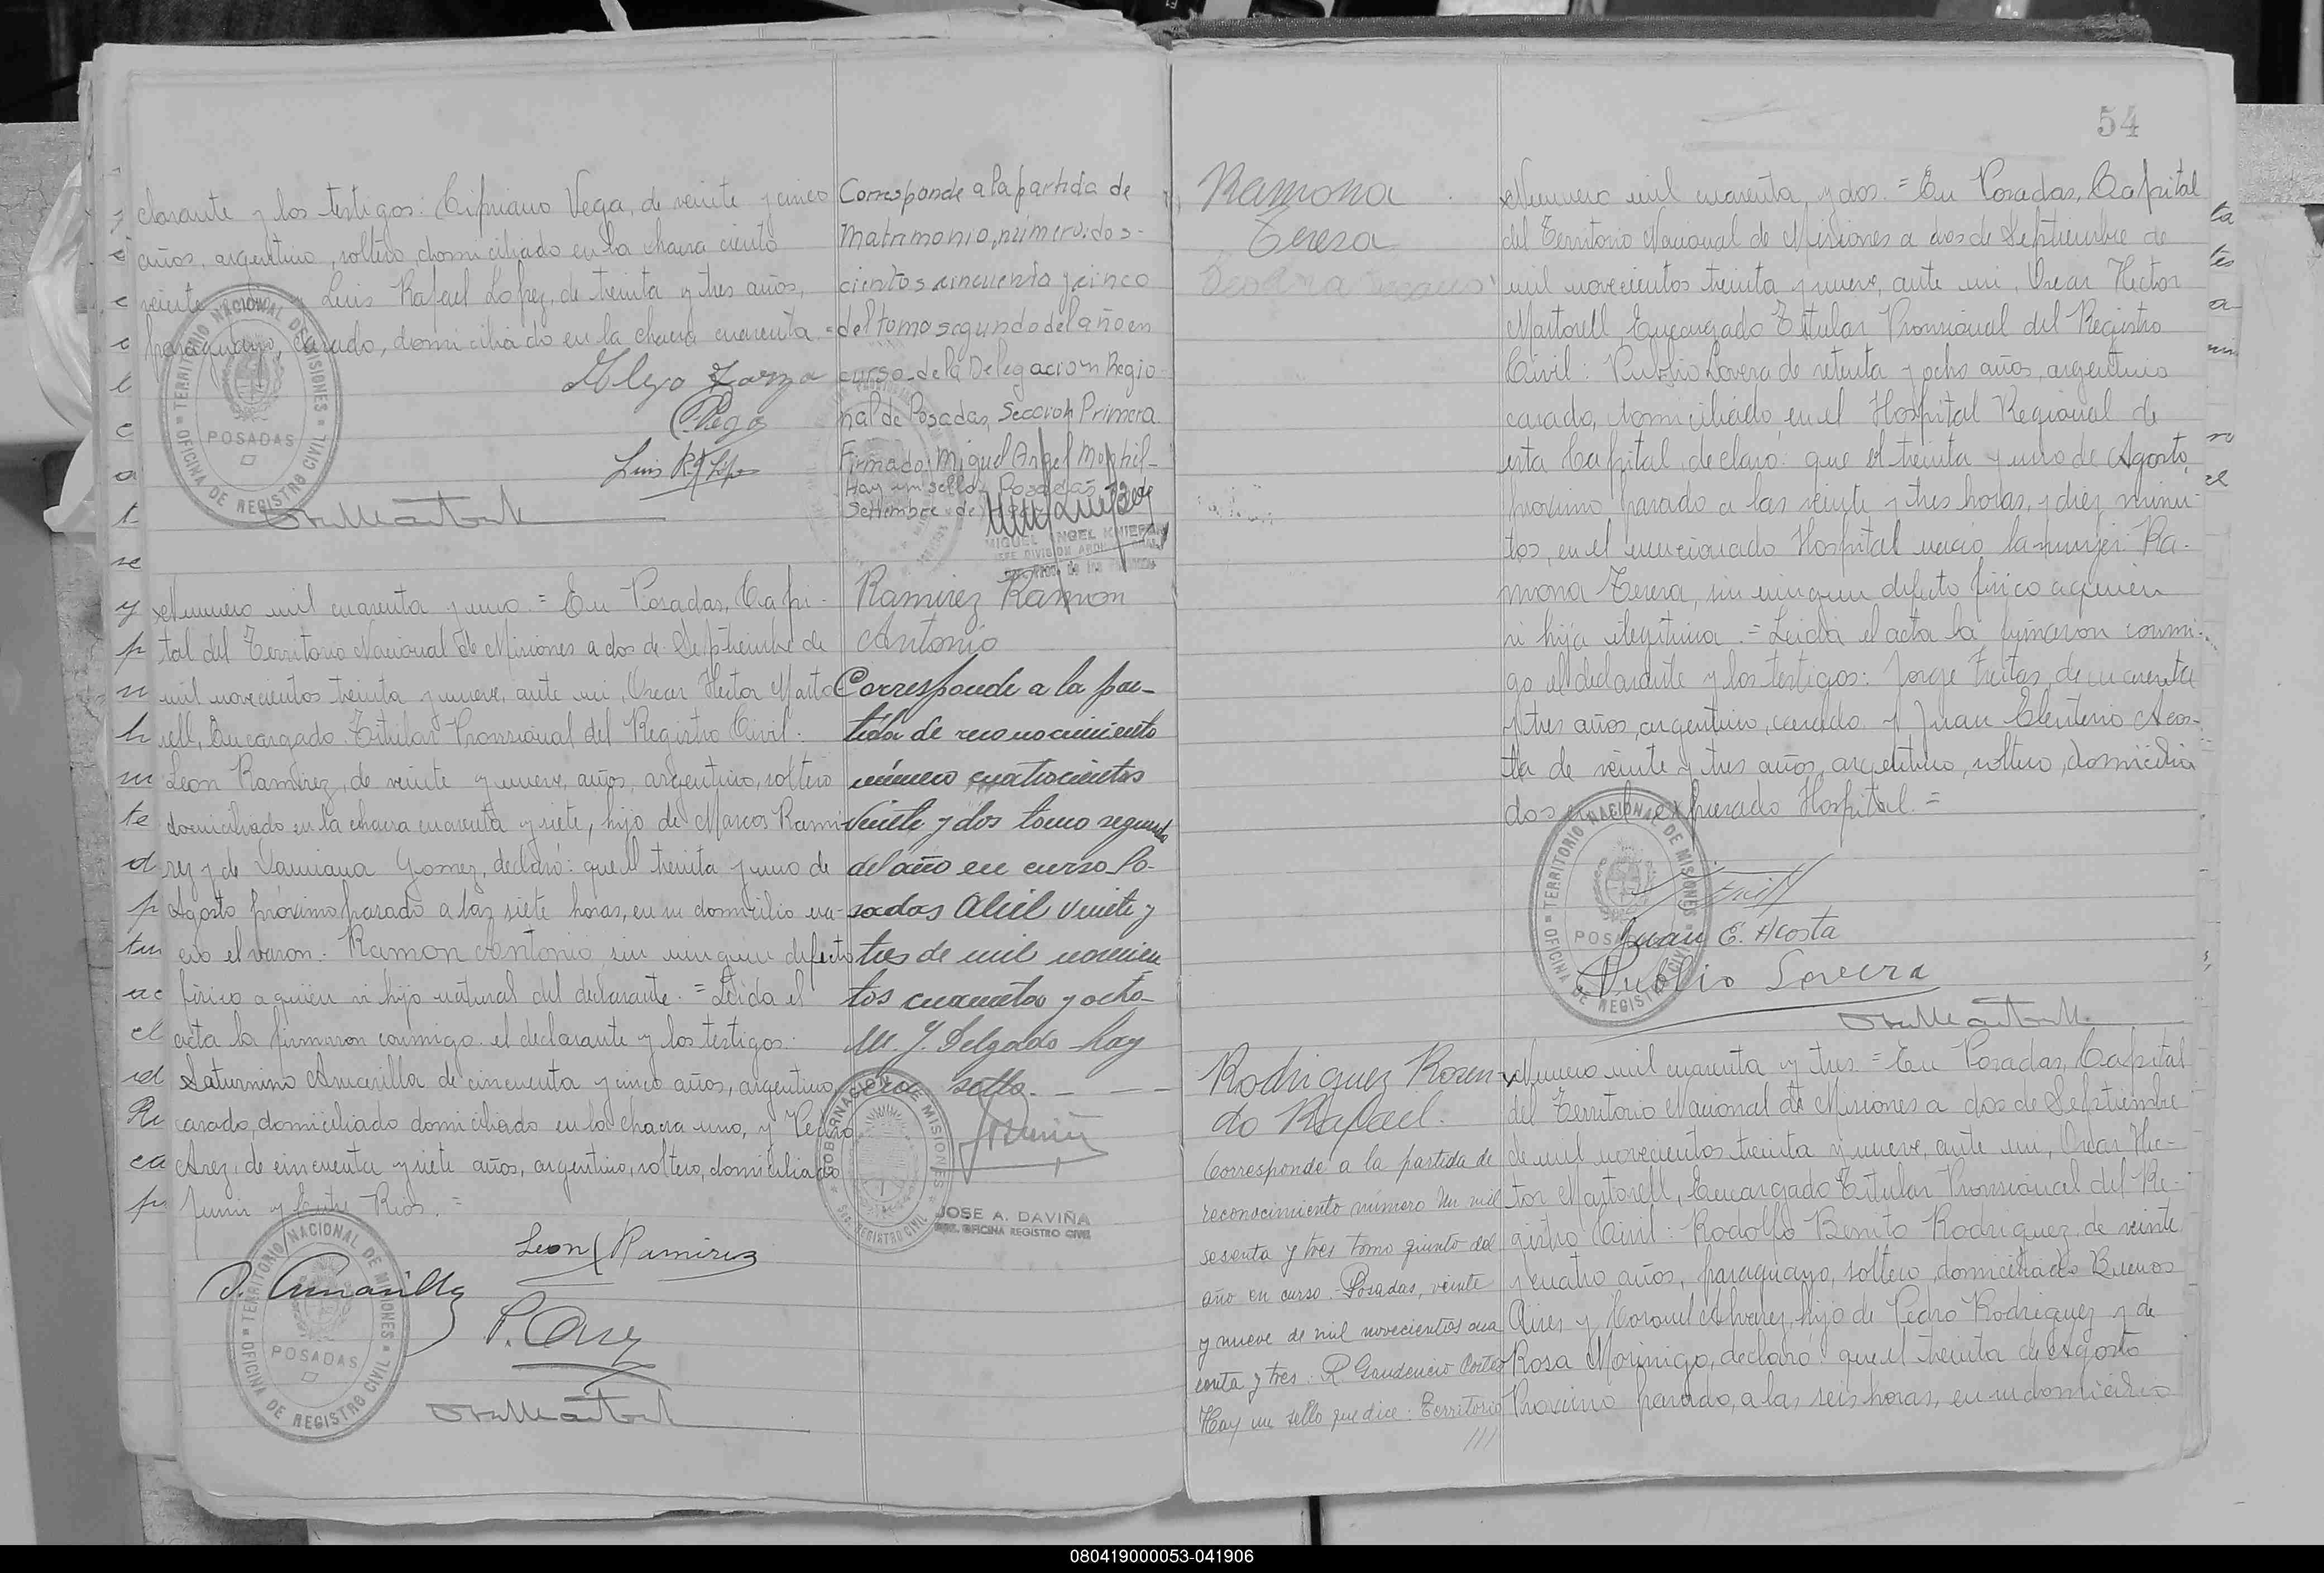 clarante y los testigos: Cipriano Vega, de veinte y cinco
años, argentino, soltero, domiciliado en la chacra ciento
veinte y Luis Rafael Lopez, de treinta y tres años,
paraguayo, casado, domiciliado en la chacra cuarenta.=
Alejo Zarza
C. Vega
Luis R. Lopez
TERRITORIO NACIONAL DE MISIONES
POSADAS
OFICINA DE REGISTRO CIVIL
Corresponde a la partida de
Matrimonio, número dos-
cientos cincuenta y cinco
del tomo segundo del año en
curso de la Delegación Regio
nal de Posadas, Sección Primera
Firmado: Miguel Angel
Hay un sello. Posadas
Setiembre de
MIGUEL ANGEL
Numero mil cuarenta y uno.= En Posadas, Capi-
tal del Territorio Nacional de Misiones a dos de Septiembre de
mil novecientos treinta y nueve, ante mi, Oscar Hector Marto
rell, Encargado Titular Provisional del Registro Civil:
Leon Ramirez, de veinte y nueve años, argentino, soltero
domiciliado en la chacra cuarenta y siete, hijo de Marcos Rami-
rez y de Damiana Gomez, declaró: que el treinta y uno de
Agosto próximo pasado a las siete horas, en su domicilio na-
ció el varon: Ramon Antonio, sin ningun defecto
fisico a quien vi hijo natural del declarante.= Leida el
acta la firmaron conmigo el declarante y los testigos:
Saturnino Amarilla de cincuenta y cinco años, argentino,
casado, domiciliado domiciliado en la chacra uno, y Pedro
Arez, de cincuenta y siete años, argentino, soltero, domiciliado
Junin y Entre Rios.=
Leon Ramirez
S. Amarilla
P. Arez
TERRITORIO NACIONAL DE MISIONES
POSADAS
OFICINA DE REGISTRO CIVIL
Ramirez Ramon
Antonio
Corresponde a la par-
tida de reconocimiento
número cuatrocientos
veinte y dos tomo segundo
del año en curso Po-
sadas Abril veinte y
tres de mil novecien
tos cuarenta y ocho
M. J. Delgado hay
un sello.
GOBERNACION DE MISIONES
REGISTRO CIVIL
JOSE A. DAVIÑA
OFICINA REGISTRO CIVIL
54
Ramona
Teresa
Numero mil cuarenta y dos.= En Posadas, Capital
del Territorio Nacional de Misiones a dos de Septiembre de
mil novecientos treinta y nueve, ante mi, Oscar Hector
Martorell, Encargado Titular Provisional del Registro
Civil: Publio Lovera de setenta y ocho años, argentino
casado, domiciliado en el Hospital Regional de
esta Capital, declaro: que el treinta y uno de Agosto
próximo pasado a las veinte y tres horas, y diez minu-
tos, en el mencionado Hospital nació la mujer: Ra-
mona Teresa, sin ningun defecto fisico a quien
vi hija ilegitima.= Leida el acta la firmaron conmi-
go el declarante y los testigos: Jorge Freitas, de cuarenta
y tres años, argentino, casado y Juan Eleuterio Acos-
ta de veinte y tres años, argentino, soltero, domicilia
dos en el expresado Hospital.=
Juan E. Acosta
Publio Lovera
TERRITORIO NACIONAL DE MISIONES
POSADAS
OFICINA DE REGISTRO CIVIL
Rodriguez Rosen-
do Rafael.
Corresponde a la partida de
reconocimiento número un mil
sesenta y tres tomo quinto del
año en curso.- Posadas, veinte
y nueve de mil novecientos cua
renta y tres. R. Gaudencio Cortes
Hay un sello que dice: Territorio
///
Numero mil cuarenta y tres= En Posadas, Capital
del Territorio Nacional de Misiones a dos de Septiembre
de mil novecientos treinta y nueve, ante mi, Oscar Hec-
tor Martorell, Encargado Titular Provisional del Re-
gistro Civil: Rodolfo Benito Rodriguez, de veinte
y cuatro años, paraguayo, soltero, domiciliado Buenos
Aires y Coronel Alvarez, hijo de Pedro Rodriguez y de
Rosa Morinigo, declaró: que el treinta de Agosto
Proximo pasado, a las seis horas, en su domicilio
080419000053-041906